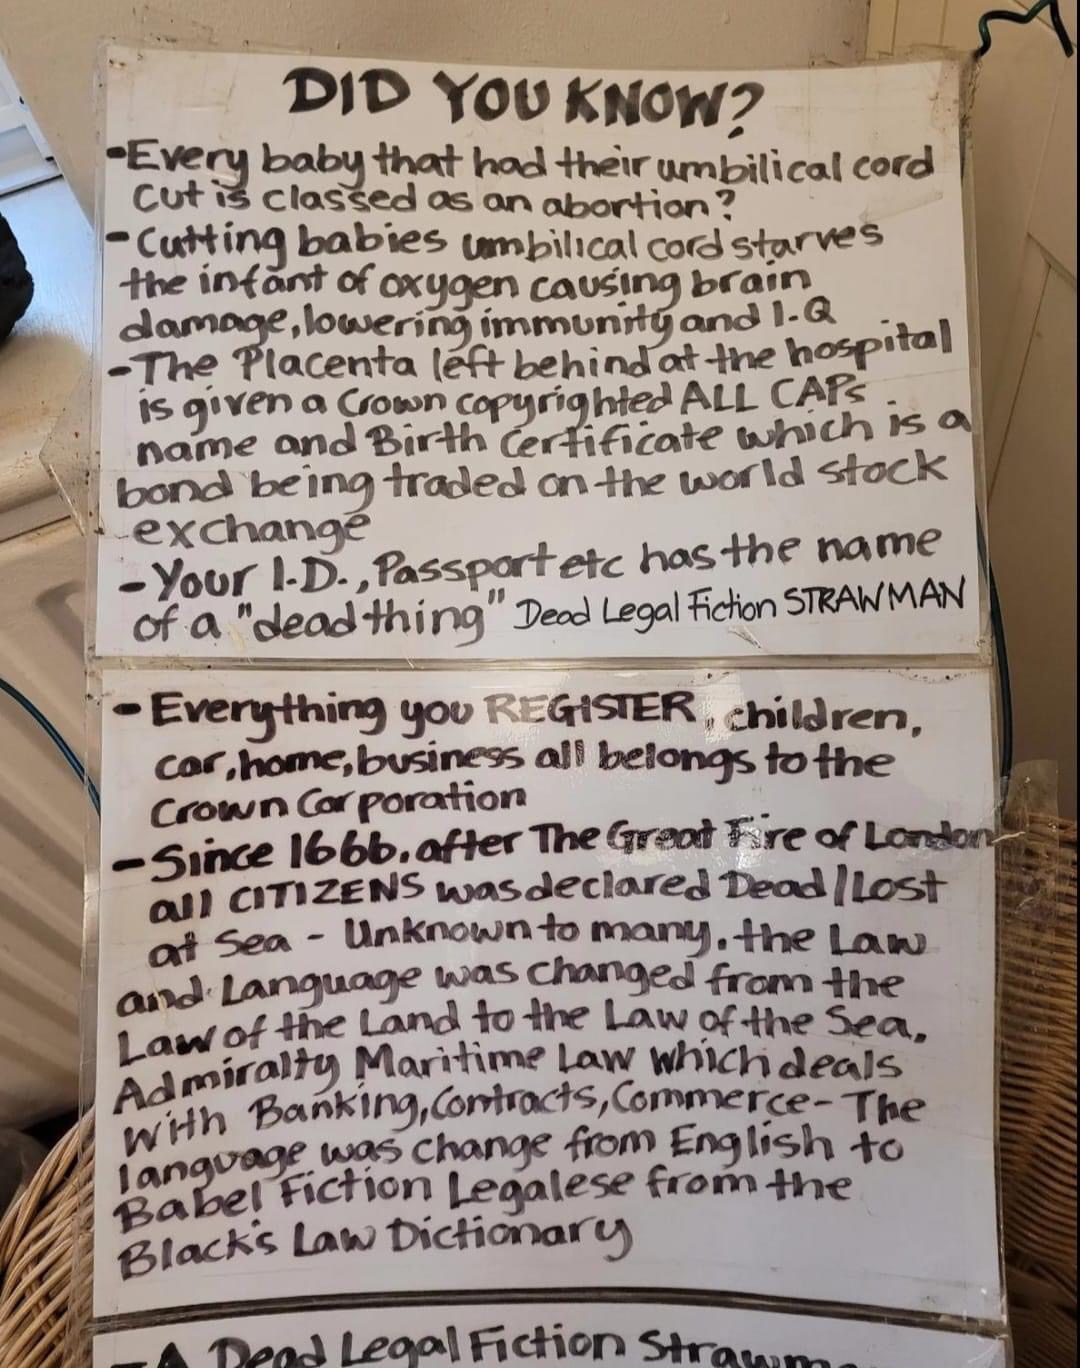 DID YOU KNOW?
-Every baby that had their umbilical cord
cut is classed as an abortion?
-Cutting babies umbilical cord starves
the infant of oxygen causing brain
damage, lowering immunity and I.Q
-The Placenta left behind at the hospital
is given a Crown copyrighted ALL CAPs
name and Birth Certificate which is a
bond being traded on the world stock
exchange
-Your I.D., Passport etc has the name
of a "dead thing" Dead Legal Fiction STRAWMAN
-Everything you REGISTER, children,
car, home, business all belongs to the
Crown Corporation
-Since 1666, after The Great Fire of London
all CITIZENS was declared Dead/Lost
at Sea - Unknown to many, the Law
and Language was changed from the
Law of the Land to the Law of the Sea,
Admiralty Maritime Law which deals
with Banking, Contracts, Commerce - The
language was change from English to
Babel Fiction Legalese from the
Black's Law Dictionary
-A Dead Legal Fiction